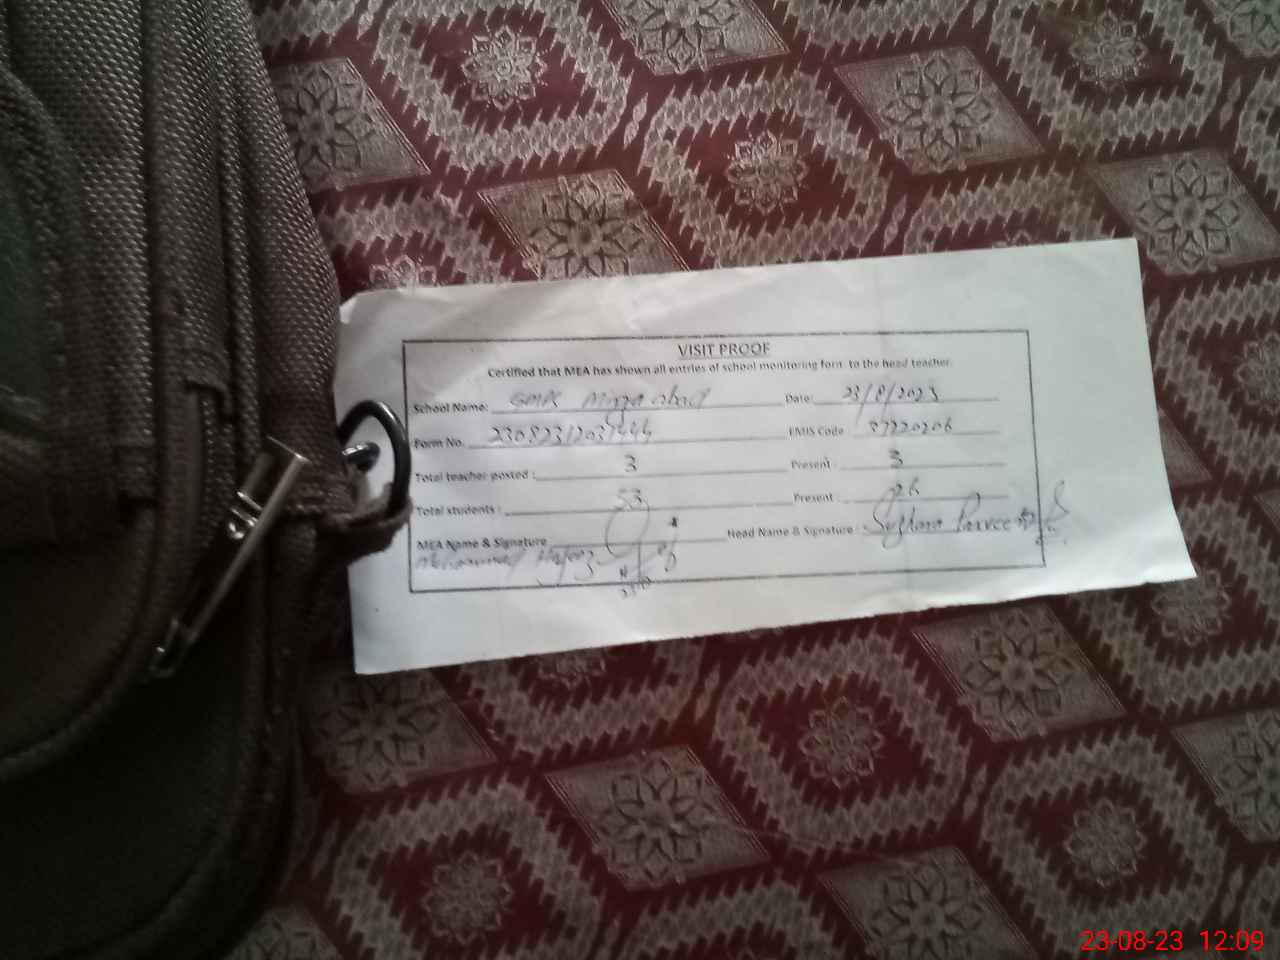 VISIT PROOF
Certified that MEA has shown all entries of school monitoring form to the head teacher.
School Name: GMPS Mirza abad Date: 23/8/2023
Form No. EMIS Code 37220206
Total teacher posted : 3 Present : 3
Total students : 53 Present : 26
MEA Name & Signature Head Name & Signature :
Mohammad Hafeez
23-08-23 12:09